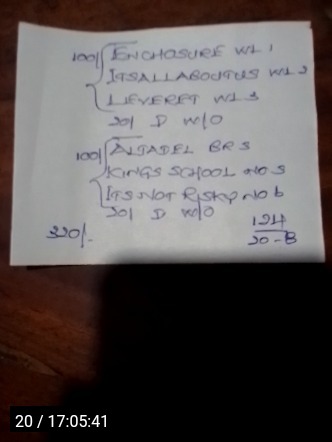 100/ ENCHOSURE WL 1
ITSALLABOUTUS WL 2
LIEVERET WL 3
20/ D W/O
100/ ALJADEL BR 5
KINGS SCHOOL NO 5
ITS NOT RISKY NO 6
20/ D W/O
320/-
124
20-8
20 / 17:05:41